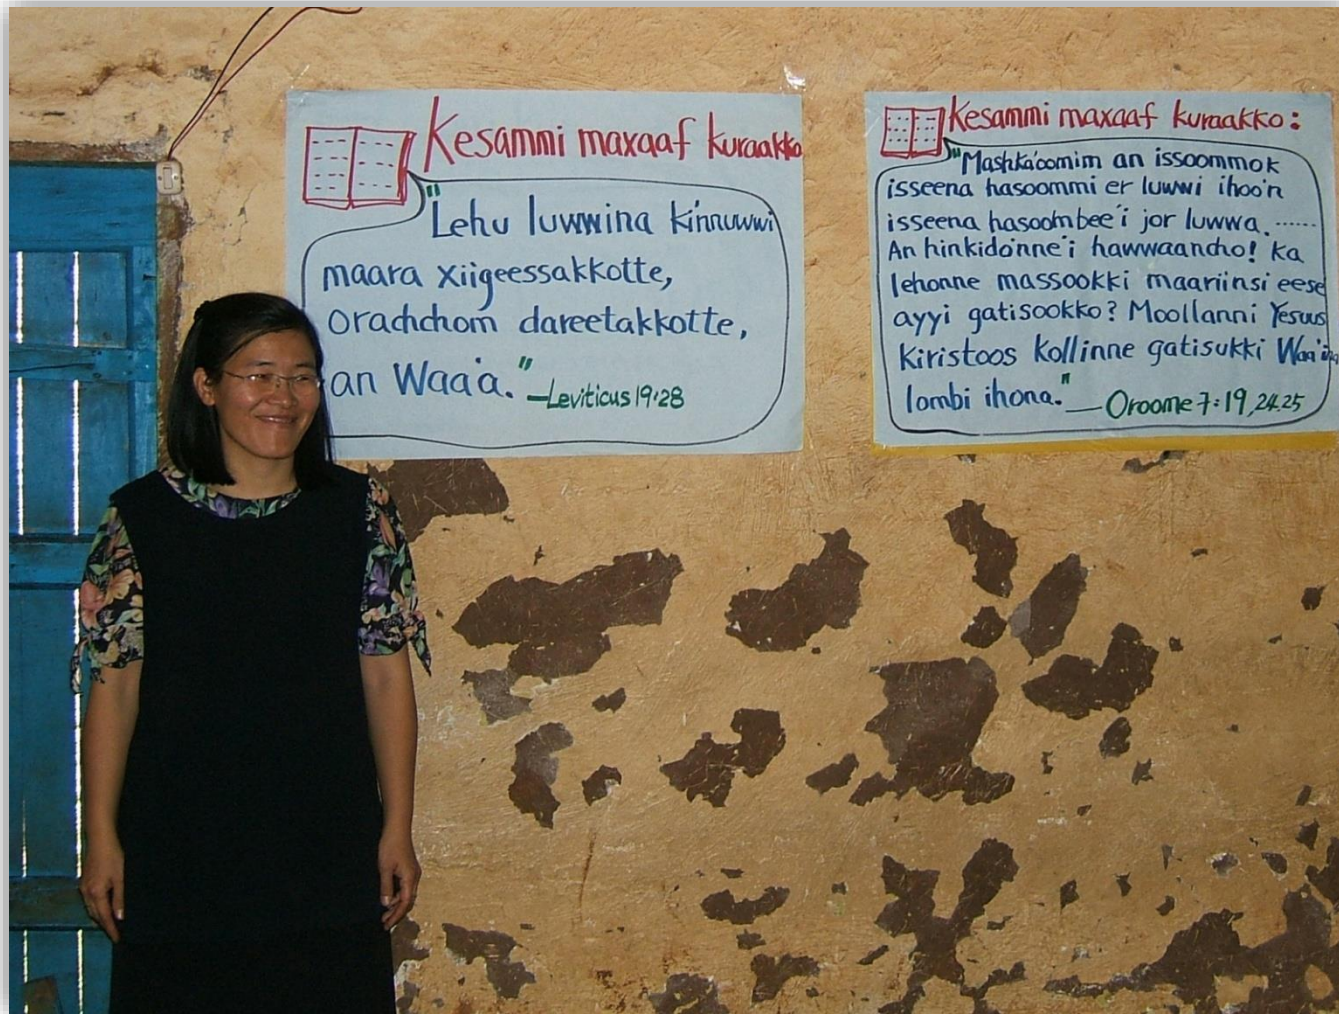 Kesammi maxaaf kuraakko
"Lehu luwwina kinnuwwi
maara xiigeessakkotte,
orachchom dareetakkotte,
an Waa'a."
—Leviticus 19:28
Kesammi maxaaf kuraakko:
"Mashka'oomim an issoommok
isseena hasoommi er luwwi ihoo'n
isseena hasoombee'i jor luwwa.......
An hinkido'nne'i hawwaancho! ka
lehonne massookki maariinsi eese
ayyi gatisookko? Moollanni Yesuus
Kiristoos kollinne gatisukki
lombi ihona."
— Oroome 7:19, 24.25